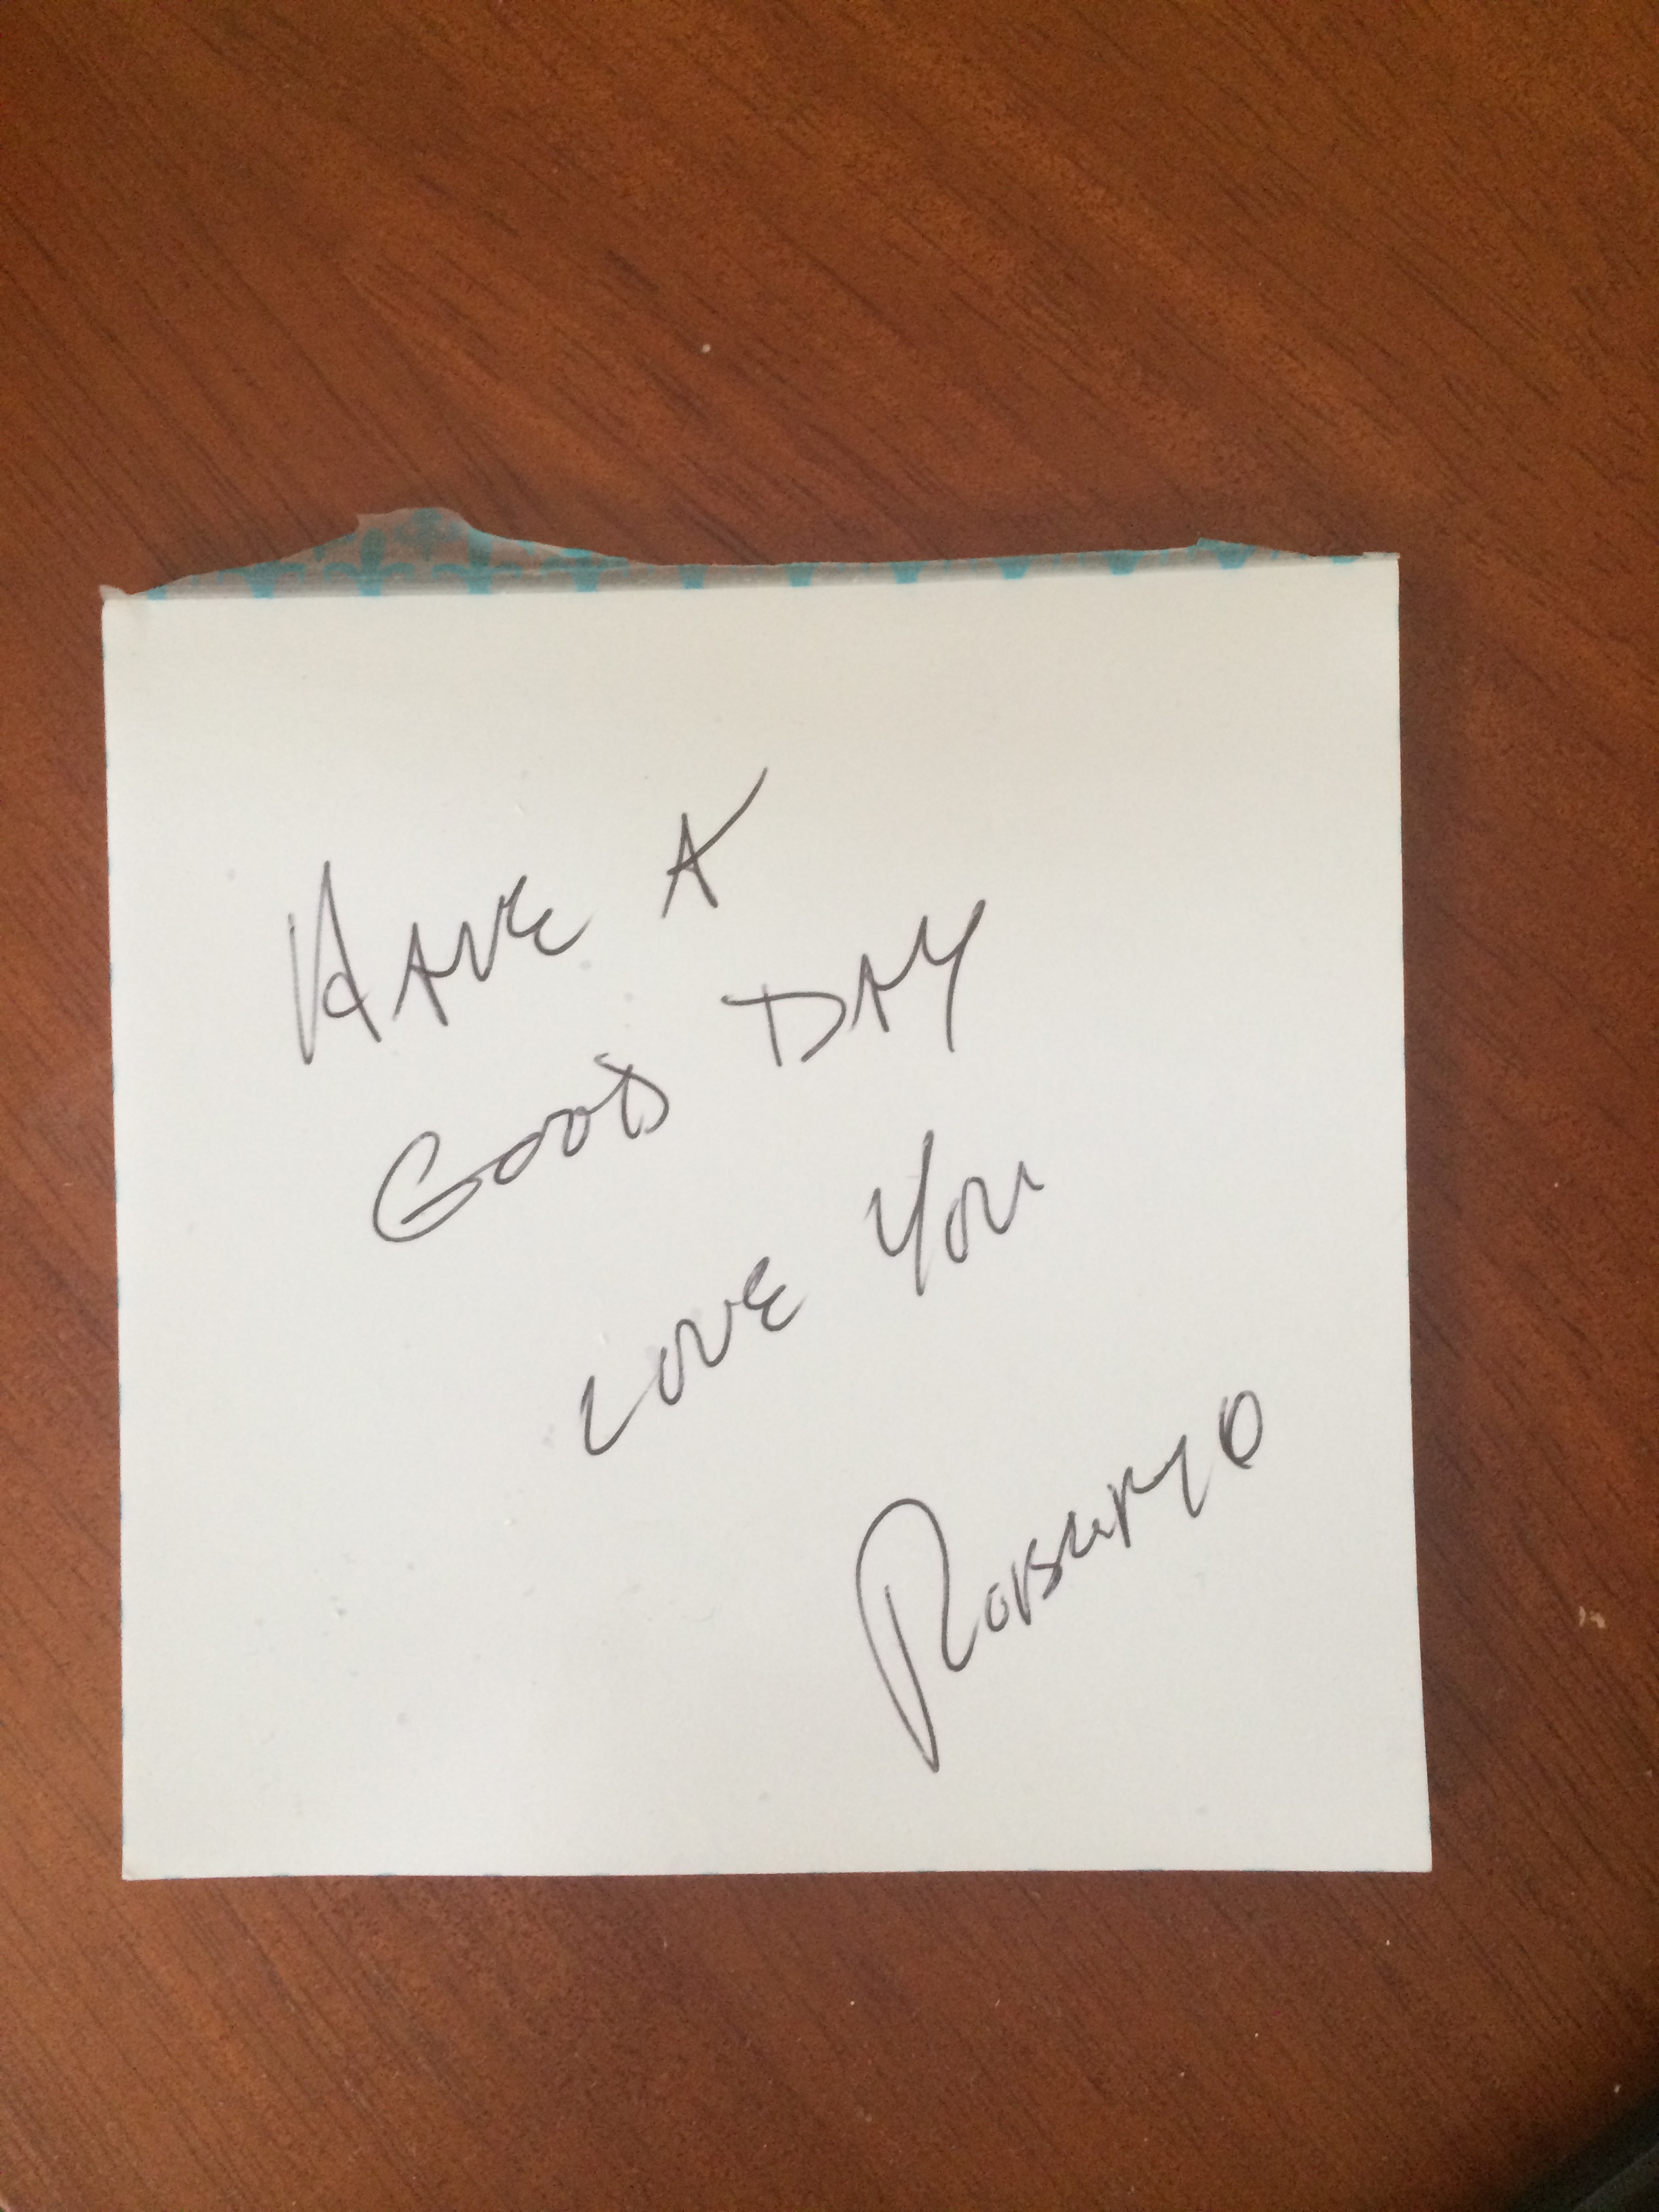 HAVE A
GOOD DAY
LOVE YOU
ROBERTO